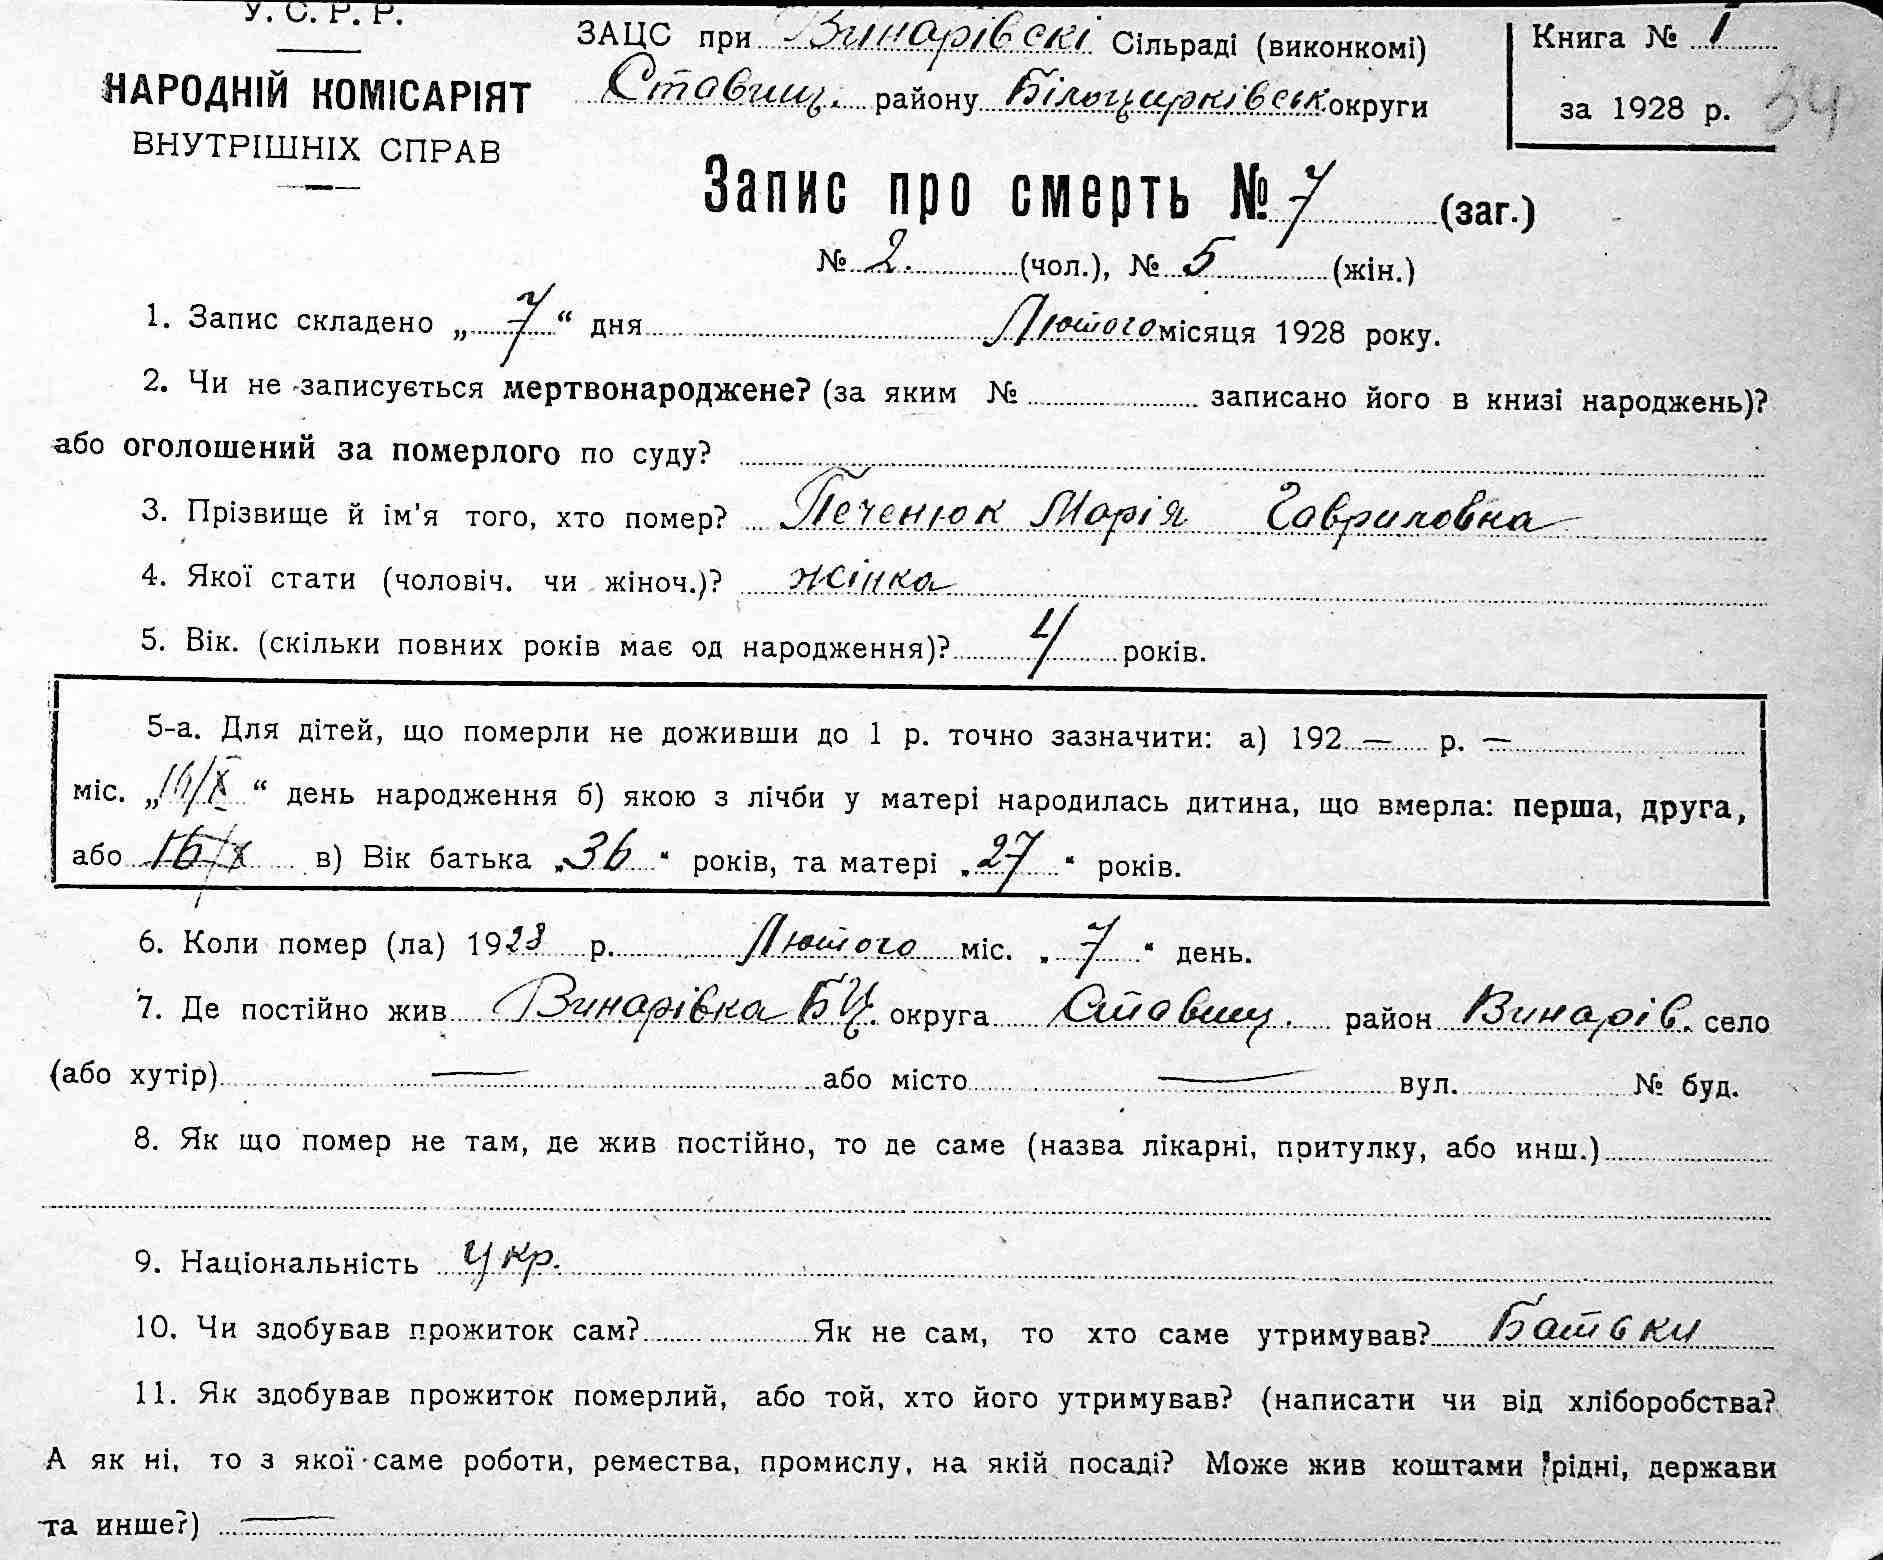 У. С. Р. Р.
НАРОДНІЙ КОМІСАРІЯТ
ВНУТРІШНІХ СПРАВ
ЗАЦС при Винарівскі Сільраді (виконкомі)
Ставищ. району Білоцирківськ округи
Книга № 1
за 1928 р. 34
Запис про смерть № 7 (заг.)
№ 2. (чол.), № 5 (жін.)
1. Запис складено „7“ дня Лютого місяця 1928 року.
2. Чи не записується мертвонароджене? (за яким № записано його в книзі народжень)?
або оголошений за померлого по суду?
3. Прізвище й ім'я того, хто помер? Печенюк Марія Гавриловна
4. Якої стати (чоловіч. чи жіноч.)? жінка
5. Вік. (скільки повних років має од народження)? 4 років.
5-а. Для дітей, що померли не доживши до 1 р. точно зазначити: а) 192 — р. —
міс. „16/X“ день народження б) якою з лічби у матері народилась дитина, що вмерла: перша, друга,
або 16/X в) Вік батька „36“ років, та матері „27“ років.
6. Коли помер (ла) 1928 р. Лютого міс. „7“ день.
7. Де постійно жив Винарівка БЦ. округа Ставищ. район Винарів. село
(або хутір) — або місто — вул. № буд.
8. Як що помер не там, де жив постійно, то де саме (назва лікарні, притулку, або инш.)
9. Національність укр.
10. Чи здобував прожиток сам? Як не сам, то хто саме утримував? Батьки
11. Як здобував прожиток померлий, або той, хто його утримував? (написати чи від хліборобства?
А як ні, то з якої саме роботи, ремества, промислу, на якій посаді? Може жив коштами рідні, держави
та инше?) —